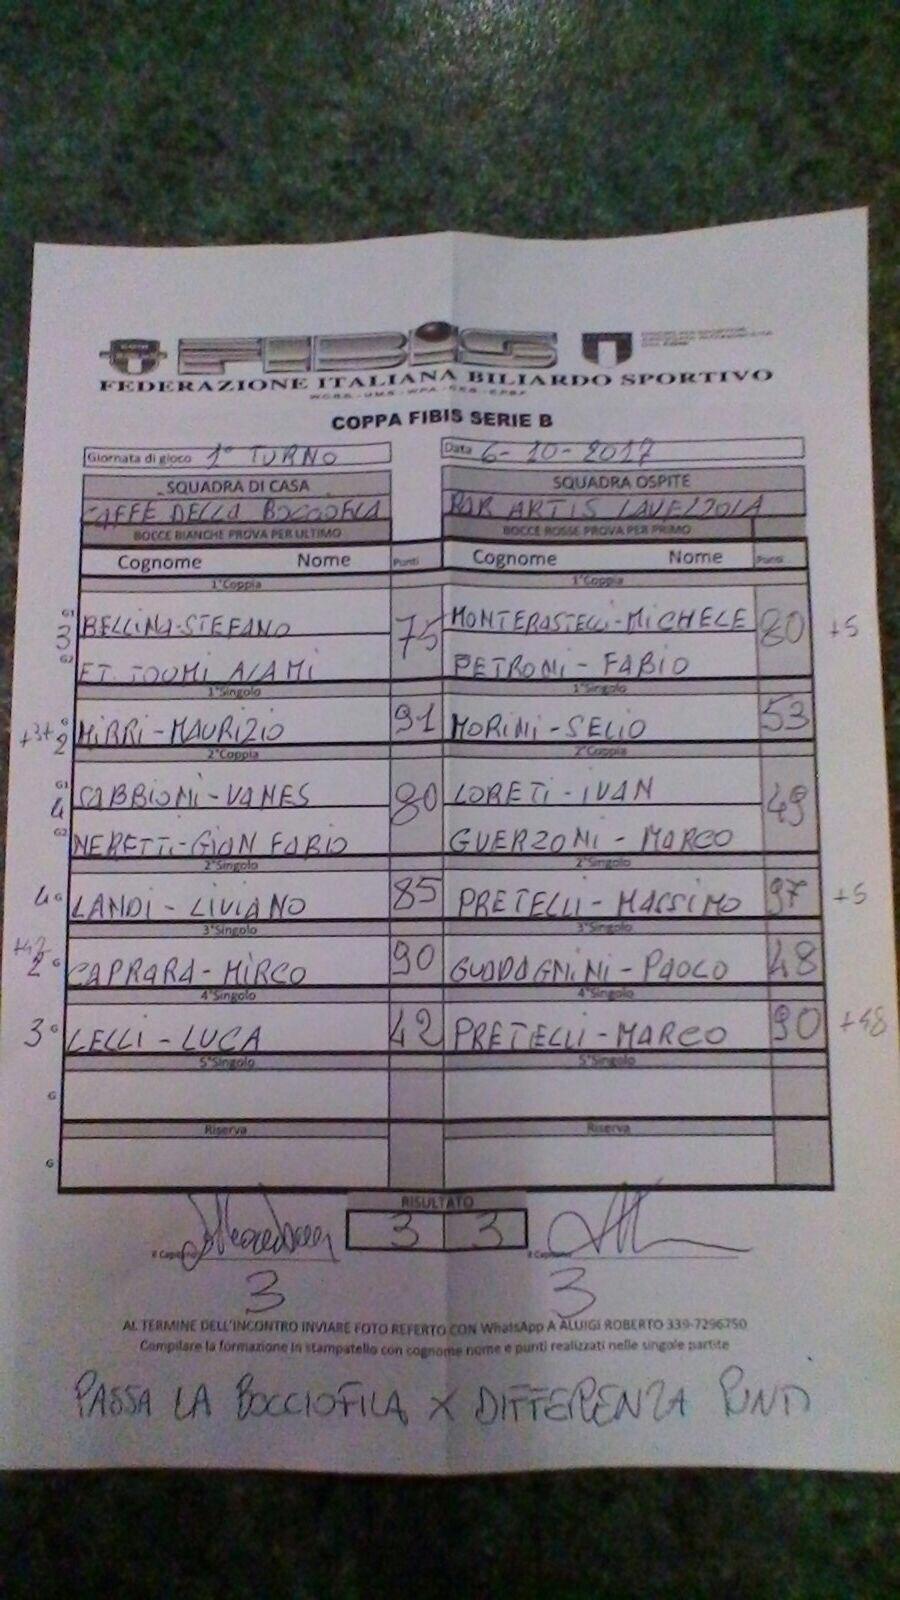 FIBIS
FEDERAZIONE ITALIANA BILIARDO SPORTIVO
COPPA FIBIS SERIE B
Giornata di gioco 1° TURNO Data 6-10-2017
SQUADRA DI CASA SQUADRA OSPITE
CAFFE DELLA BOCCIOFILA BAR ARTIS LAVEZZOLA
BOCCE BIANCHE PROVA PER ULTIMO BOCCE ROSSE PROVA PER PRIMO
Cognome Nome Punti Cognome Nome Punti
1°Coppia 1°Coppia
G1 3 BELLINA-STEFANO 75 MONTERASTELLI-MICHELE 80 +5
G2 ET TOUMI ALAMI PETRONI - FABIO
1°Singolo 1°Singolo
G 2 MIRRI-MAURIZIO 91 MORINI-SELIO 53
2°Coppia 2°Coppia
G1 4 SABBIONI-VANES 80 LORETI-IVAN 49
G2 NERETTI-GIAN FABIO GUERZONI - MARCO
2°Singolo 2°Singolo
4 G LANDI - LIVIANO 85 PRETELLI-MASSIMO 97 +5
3°Singolo 3°Singolo
+42
2 G CAPRARA-MIRCO 90 GUADAGNINI-PAOLO 48
4°Singolo 4°Singolo
3 G LELLI - LUCA 42 PRETELLI-MARCO 90 +48
5°Singolo 5°Singolo
G
Riserva Riserva
G
RISULTATO
3 3
Il Capitano Il Capitano
3 3
AL TERMINE DELL'INCONTRO INVIARE FOTO REFERTO CON WhatsApp A ALUIGI ROBERTO 339-7296750
Compilare la formazione in stampatello con cognome nome e punti realizzati nelle singole partite
PASSA LA BOCCIOFILA X DIFFERENZA PUNTI